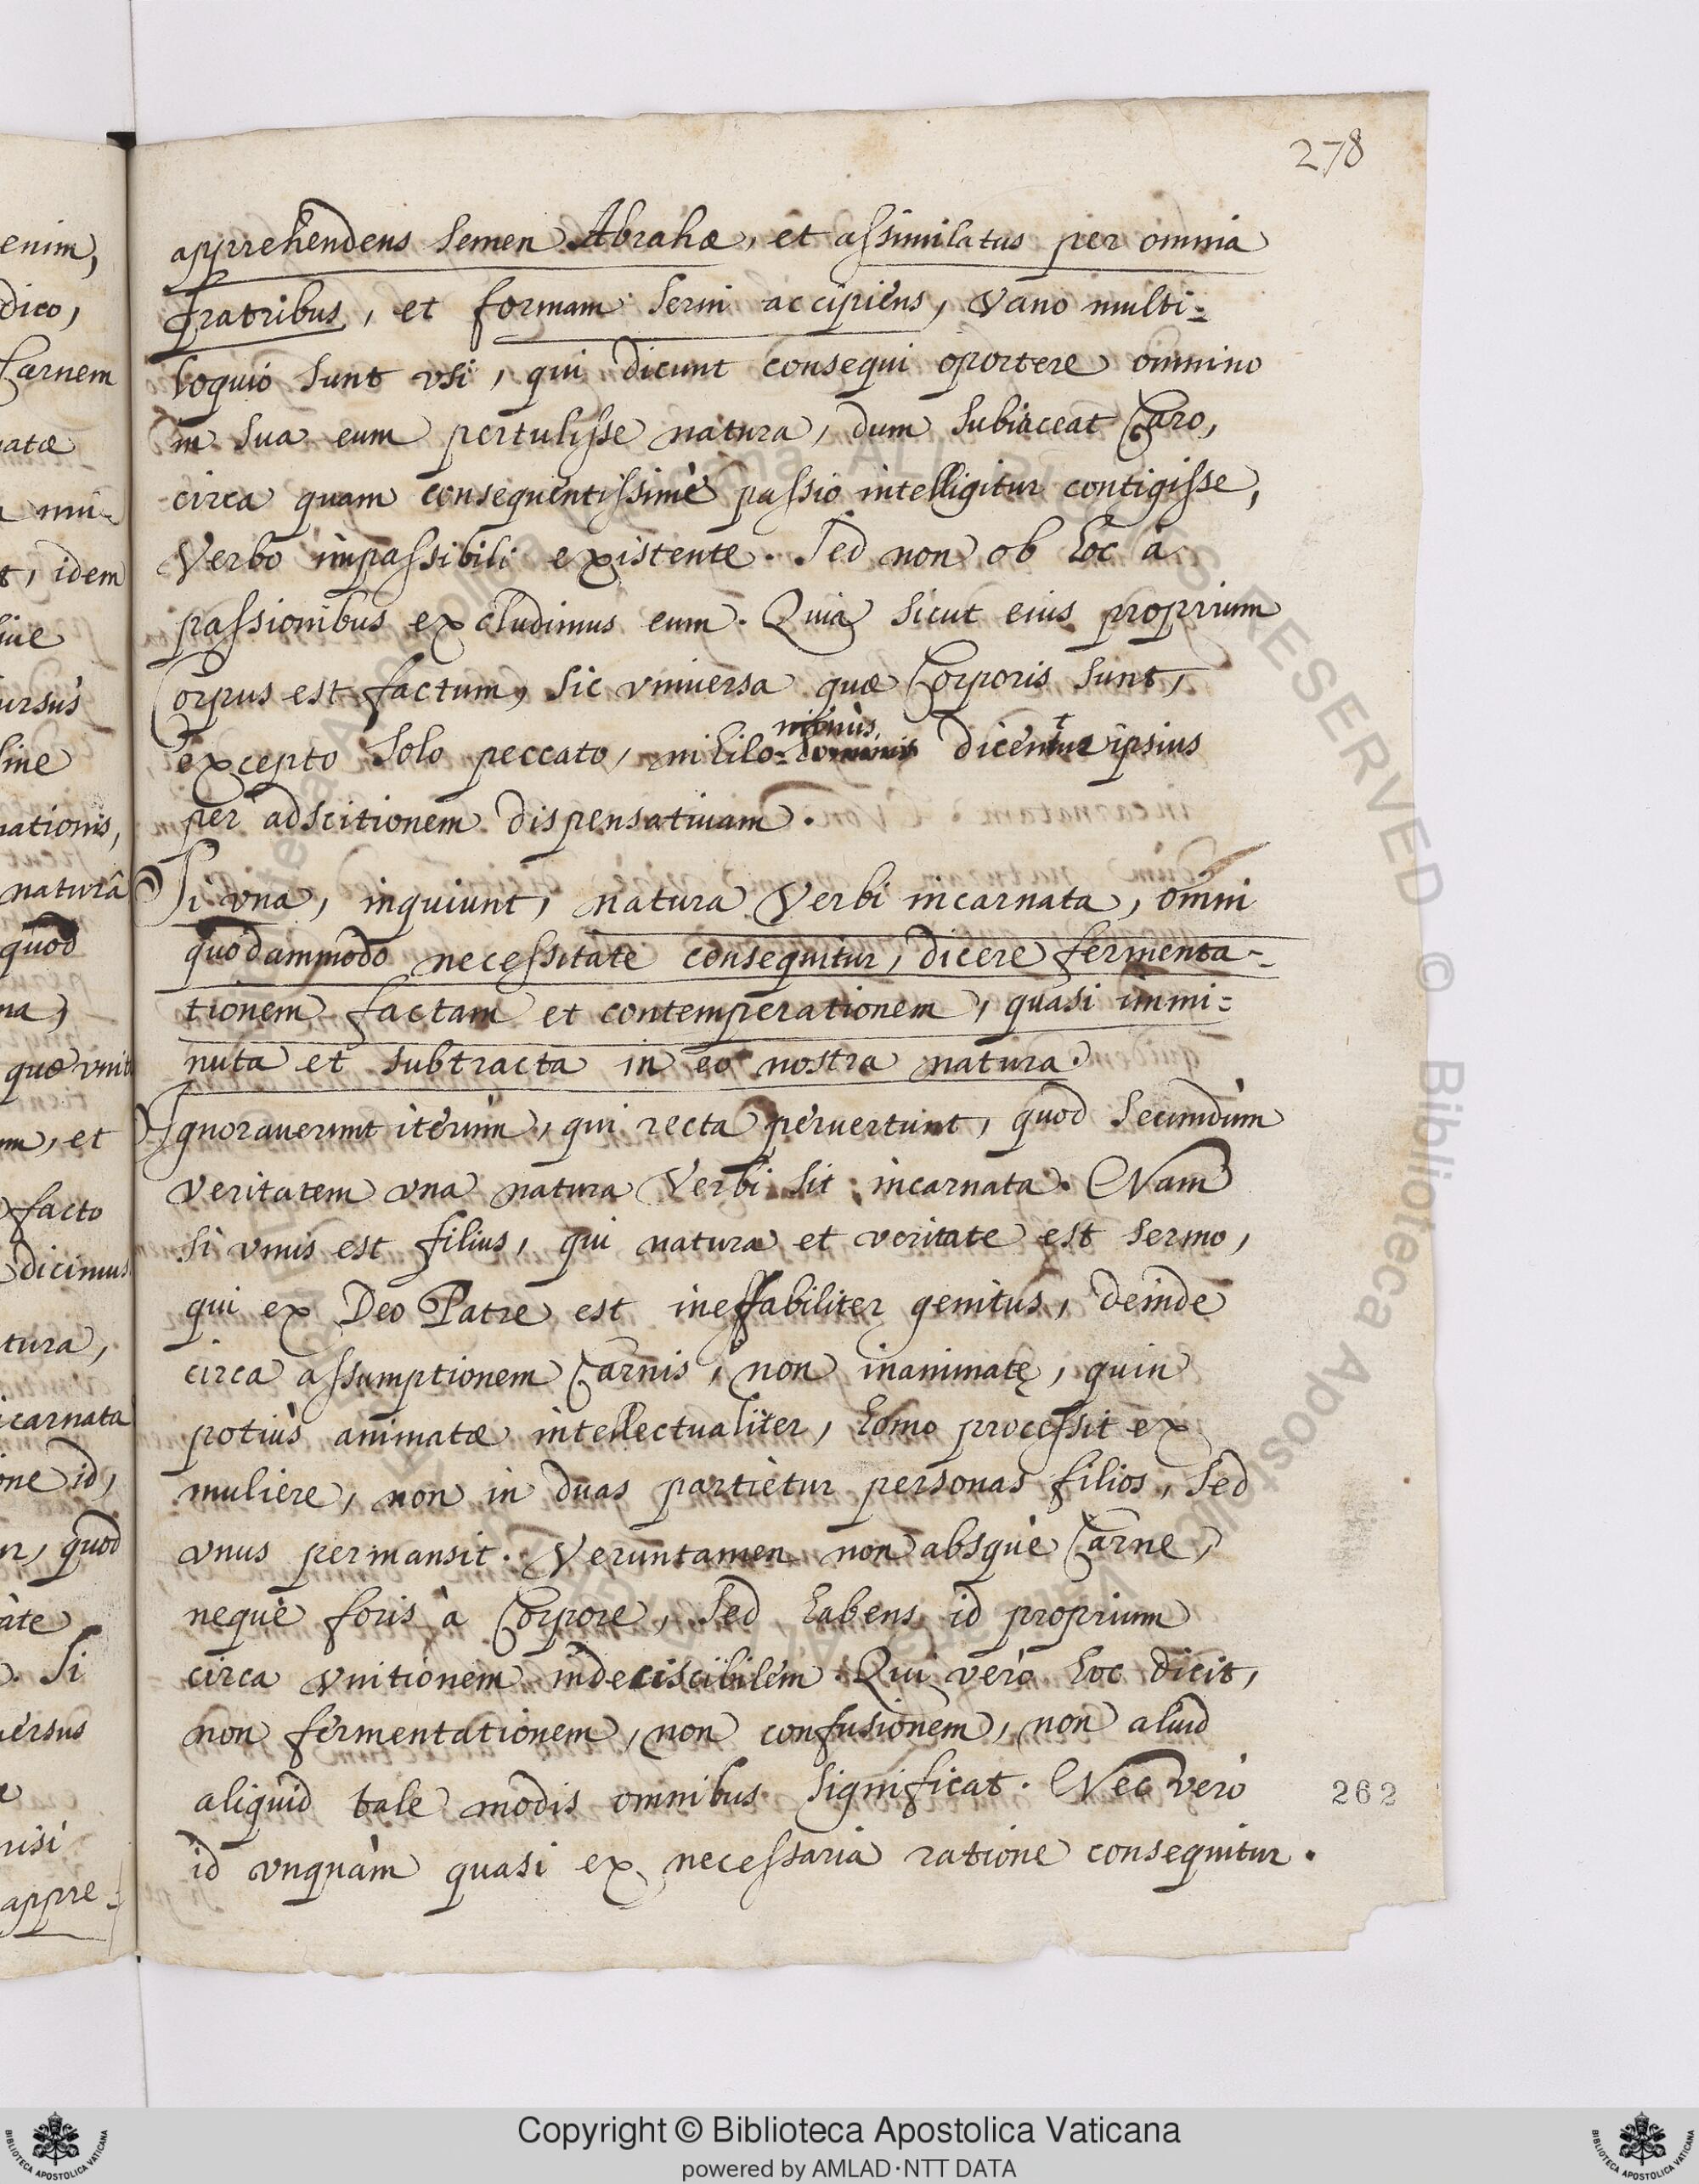 278
apprehendens semen Abrahæ, et assimilatus per omnia
fratribus, et formam serui accipiens, vano multi=
loquio sunt vsi, qui dicunt consequi oportere omnino
in sua eum pertulisse natura, dum subiaceat Caro,
circa quam consequentissimè passio intelligitur contigisse,
Verbo impassibili existente. Sed non ob hoc à
passionibus excludimus eum. Quia sicut eius proprium
Corpus est factum, sic vniuersa quæ Corporis sunt,
excepto solo peccato, nihilo=minùs dicentur ipsius
per adscitionem dispensatiuam.
Si vna, inquiunt, natura Verbi incarnata, omni
quodammodo necessitate consequitur, dicere fermenta-
tionem factam et contemperationem, quasi immi=
nuta et subtracta in eo nostra natura.
Ignorauerunt iterùm, qui recta peruertunt, quod secundùm
veritatem vna natura Verbi sit incarnata. Nam
si vnus est filius, qui natura et veritate est sermo,
qui ex Deo Patre est ineffabiliter genitus, deinde
circa assumptionem Carnis, non inanimatę, quin
potiùs animatæ intellectualiter, homo processit ex
muliere, non in duas partietur personas filios, sed
vnus permansit. Veruntamen non absque Carne,
neque foris à Corpore, sed habens id proprium
circa vnitionem indeciscibilem. Qui verò hoc dicit,
non fermentationem, non confusionem, non aliud
aliquid tale modis omnibus significat. Nec verò
id vnquàm quasi ex necessaria ratione consequitur.
262
enim,
dico,
Carnem
idem
facto
dicimus
tura,
quod
Si
appre=
Copyright © Biblioteca Apostolica Vaticana
powered by AMLAD·NTT DATA